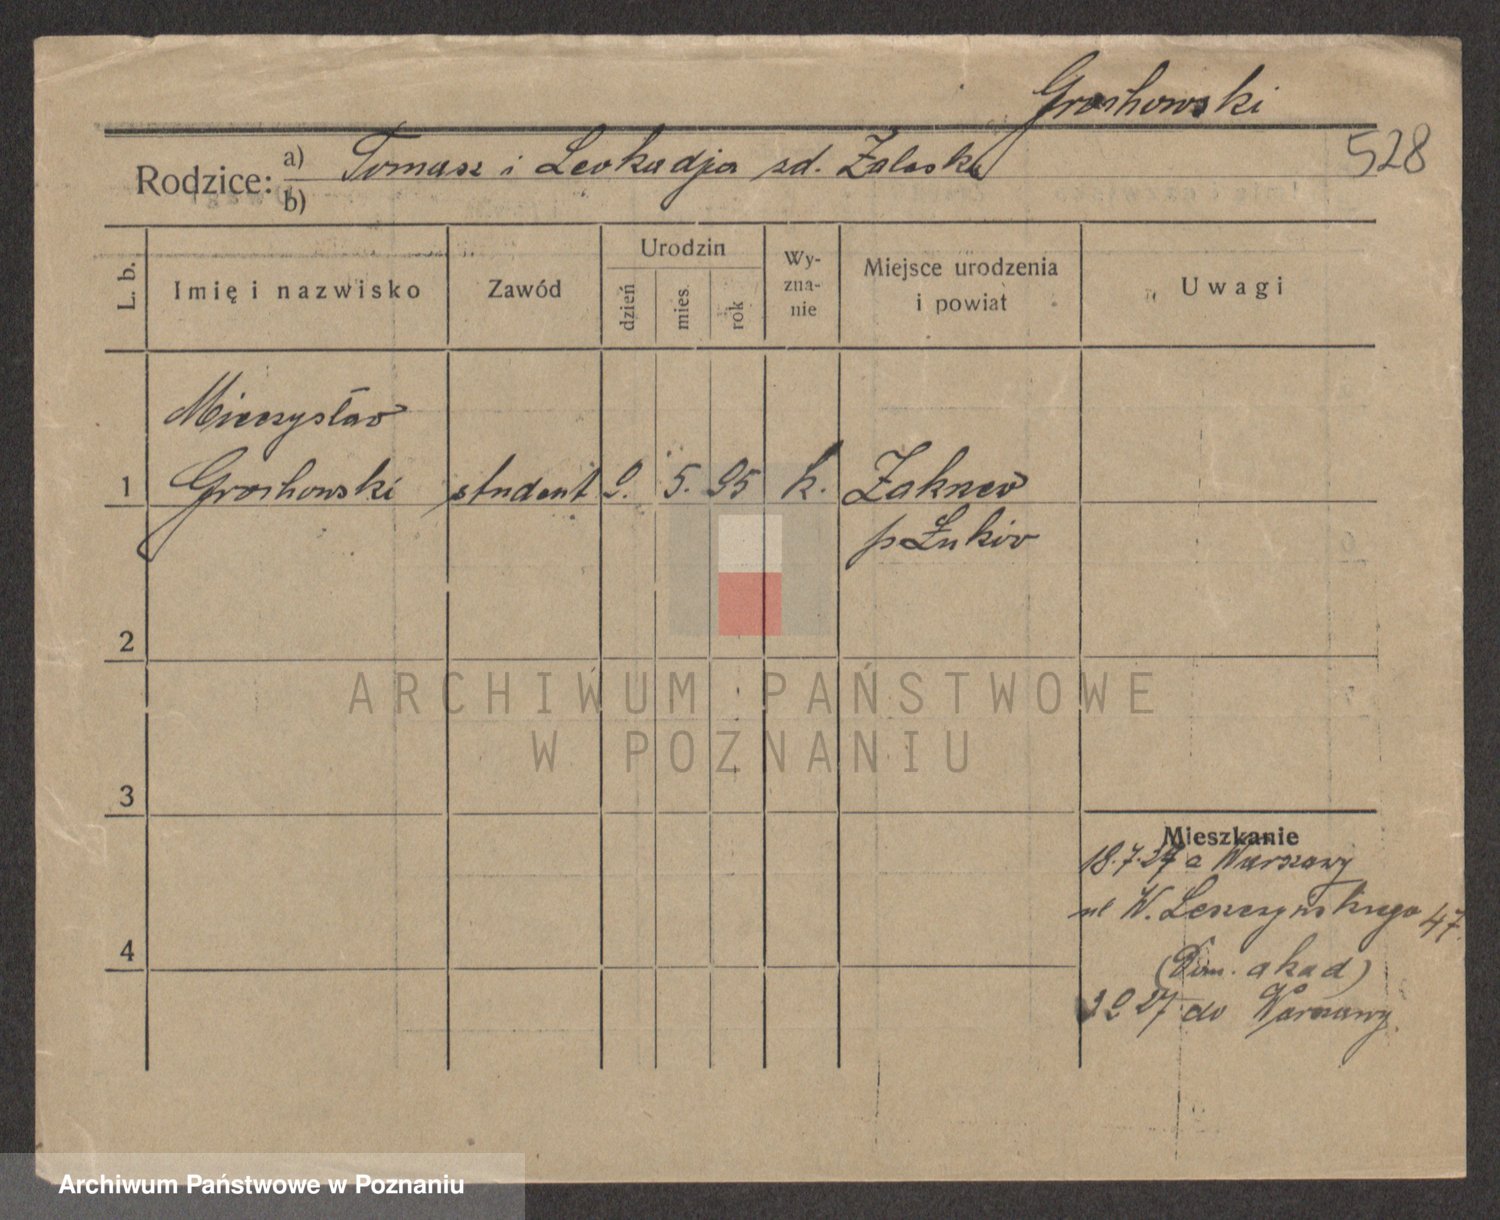 Grochowski
528
Rodzice: a) Tomasz i Leokadja zd. Zaleska
b)
L. b.
Imię i nazwisko
Zawód
Urodzin
dzień
mies.
rok
Wy-
zna-
nie
Miejsce urodzenia
i powiat
Uwagi
Mieczysław
1 Grochowski student 9. 5. 95 k. Zakrzew
p Łuków
2
ARCHIWUM PAŃSTWOWE
W POZNANIU
3
Mieszkanie
18.7.27 z Warszawy
ul W. Leszczyńskiego 47.
4
(Dom. akad)
27 do Warszawy
Archiwum Państwowe w Poznaniu